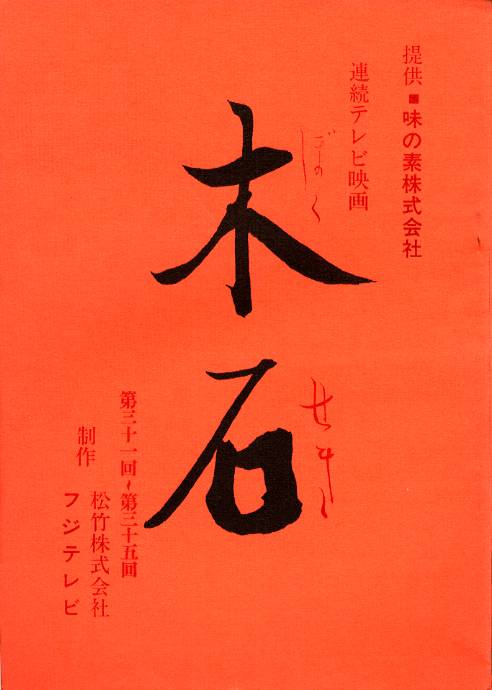 提供■味の素株式会社
連続テレビ映画
ぼく
木石
せき
第三十一回〜第三十五回
制作
松竹株式会社
フジテレビ